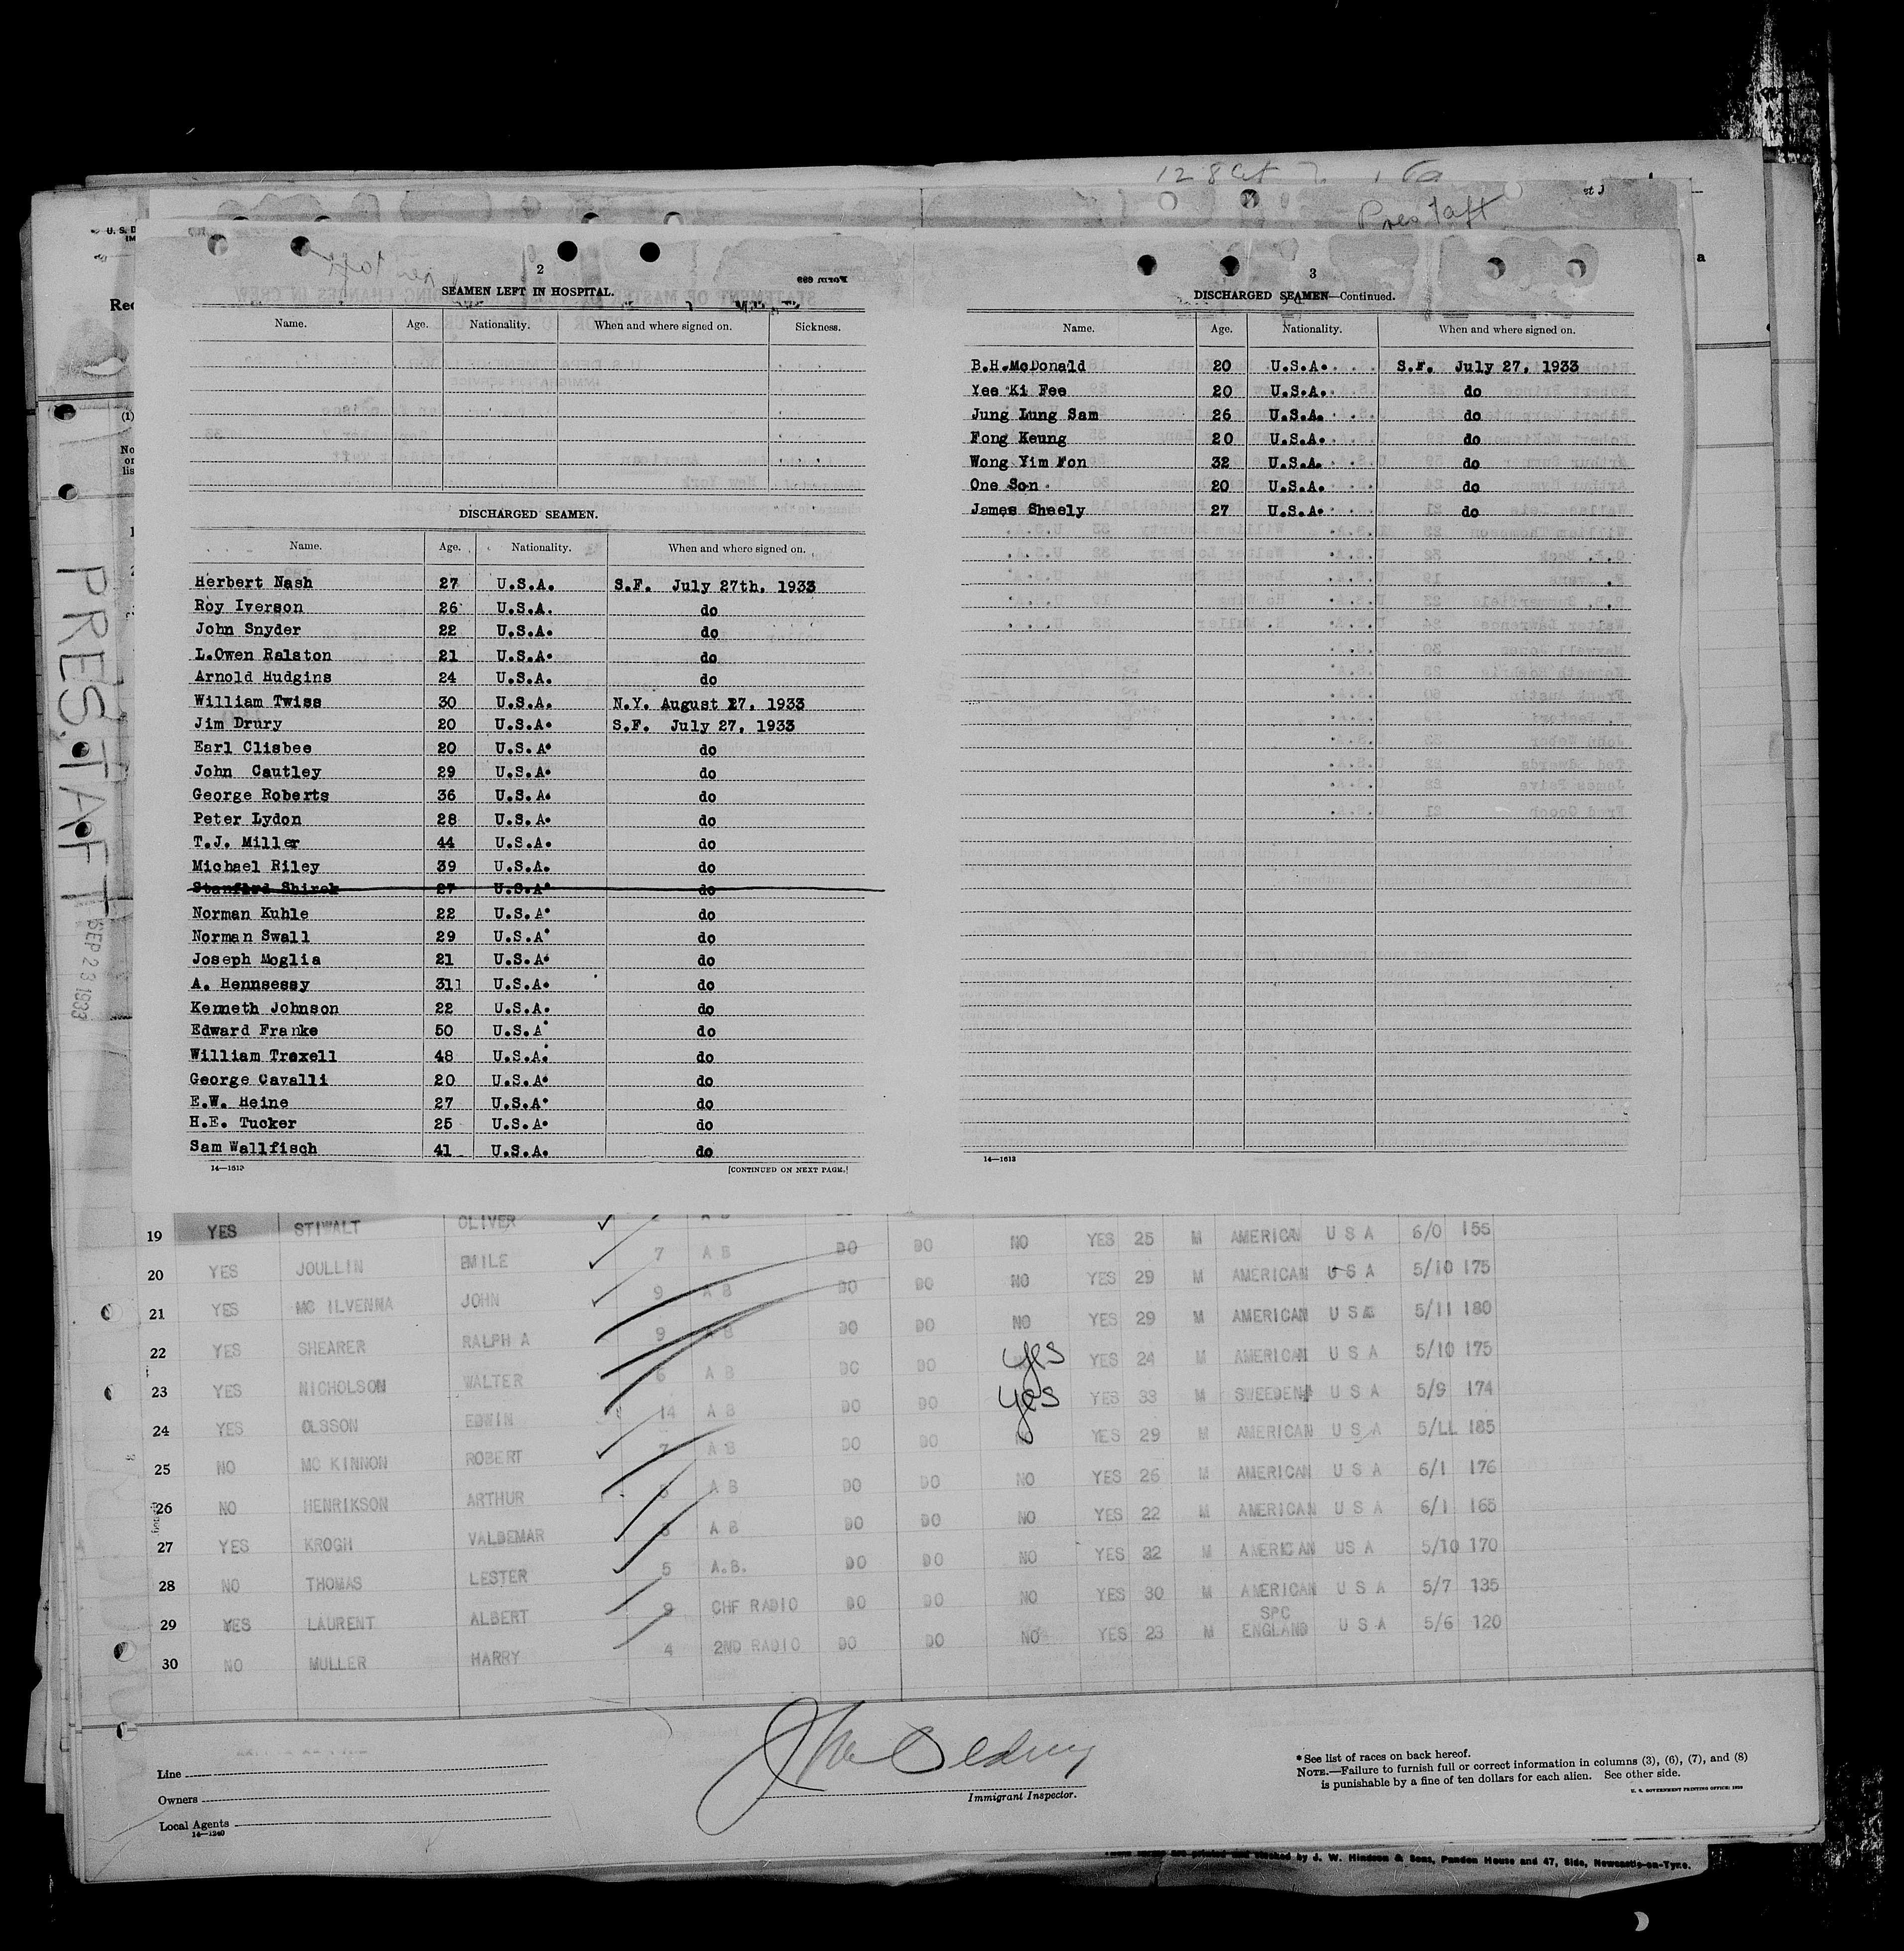 12
Pres Taft
2
SEAMEN LEFT IN HOSPITAL.
Name. Age. Nationality. When and where signed on. Sickness.
DISCHARGED SEAMEN.
Name. Age. Nationality. When and where signed on.
Herbert Nash 27 U.S.A. S.F. July 27th, 1933
Roy Iverson 26 U.S.A. do
John Snyder 22 U.S.A. do
L.Owen Ralston 21 U.S.A. do
Arnold Hudgins 24 U.S.A. do
William Twiss 30 U.S.A. N.Y. August 27, 1933
Jim Drury 20 U.S.A. S.F. July 27, 1933
Earl Clisbee 20 U.S.A. do
John Cautley 29 U.S.A. do
George Roberts 36 U.S.A. do
Peter Lydon 28 U.S.A. do
T.J. Miller 44 U.S.A. do
Michael Riley 39 U.S.A. do
Stanford Shirek 27 U.S.A. do
Norman Kuhle 22 U.S.A. do
Norman Swall 29 U.S.A. do
Joseph Moglia 21 U.S.A. do
A. Hennsessy 31 U.S.A. do
Kenneth Johnson 22 U.S.A. do
Edward Franke 50 U.S.A. do
William Trexell 48 U.S.A. do
George Cavalli 20 U.S.A. do
E.W. Heine 27 U.S.A. do
H.E. Tucker 25 U.S.A. do
Sam Wallfisch 41 U.S.A. do
14—1613 [CONTINUED ON NEXT PAGE.]
3
DISCHARGED SEAMEN—Continued.
Name. Age. Nationality. When and where signed on.
B.H.McDonald 20 U.S.A. S.F. July 27, 1933
Yee Ki Fee 20 U.S.A. do
Jung Lung Sam 26 U.S.A. do
Fong Keung 20 U.S.A. do
Wong Yim Fon 32 U.S.A. do
One Son 20 U.S.A. do
James Sheely 27 U.S.A. do
14—1613
PRES. TAFT
SEP 23 1933
19 YES STIWALT OLIVER A B DO NO YES 25 M AMERICAN U S A 6/0 155
20 YES JOULLIN EMILE 7 A B DO DO NO YES 29 M AMERICAN U S A 5/10 175
21 YES MC ILVENNA JOHN 9 A B DO DO NO YES 29 M AMERICAN U S A 5/11 180
22 YES SHEARER RALPH A 9 A B DO DO yes YES 24 M AMERICAN U S A 5/10 175
23 YES NICHOLSON WALTER 6 A B DO DO yes YES 33 M SWEEDEN U S A 5/9 174
24 YES OLSSON EDWIN 14 A B DO DO NO YES 29 M AMERICAN U S A 5/LL 185
25 NO MC KINNON ROBERT 7 A B DO DO NO YES 26 M AMERICAN U S A 6/1 176
26 NO HENRIKSON ARTHUR A B DO DO NO YES 22 M AMERICAN U S A 6/1 165
27 YES KROGH VALDEMAR A B DO DO NO YES 32 M AMERICAN US A 5/10 170
28 NO THOMAS LESTER 5 A.B. DO DO NO YES 30 M AMERICAN U S A 5/7 135
29 YES LAURENT ALBERT 9 CHF RADIO DO DO NO YES 23 M SPC ENGLAND U S A 5/6 120
30 NO MULLER HARRY 4 2ND RADIO DO DO
Line
Owners
Local Agents
14—1240
Immigrant Inspector.
* See list of races on back hereof.
NOTE.—Failure to furnish full or correct information in columns (3), (6), (7), and (8)
is punishable by a fine of ten dollars for each alien. See other side.
U. S. GOVERNMENT PRINTING OFFICE:
by J. W. Hindson & Sons, Pandon House and 47, Side, Newcastle-on-Tyne.